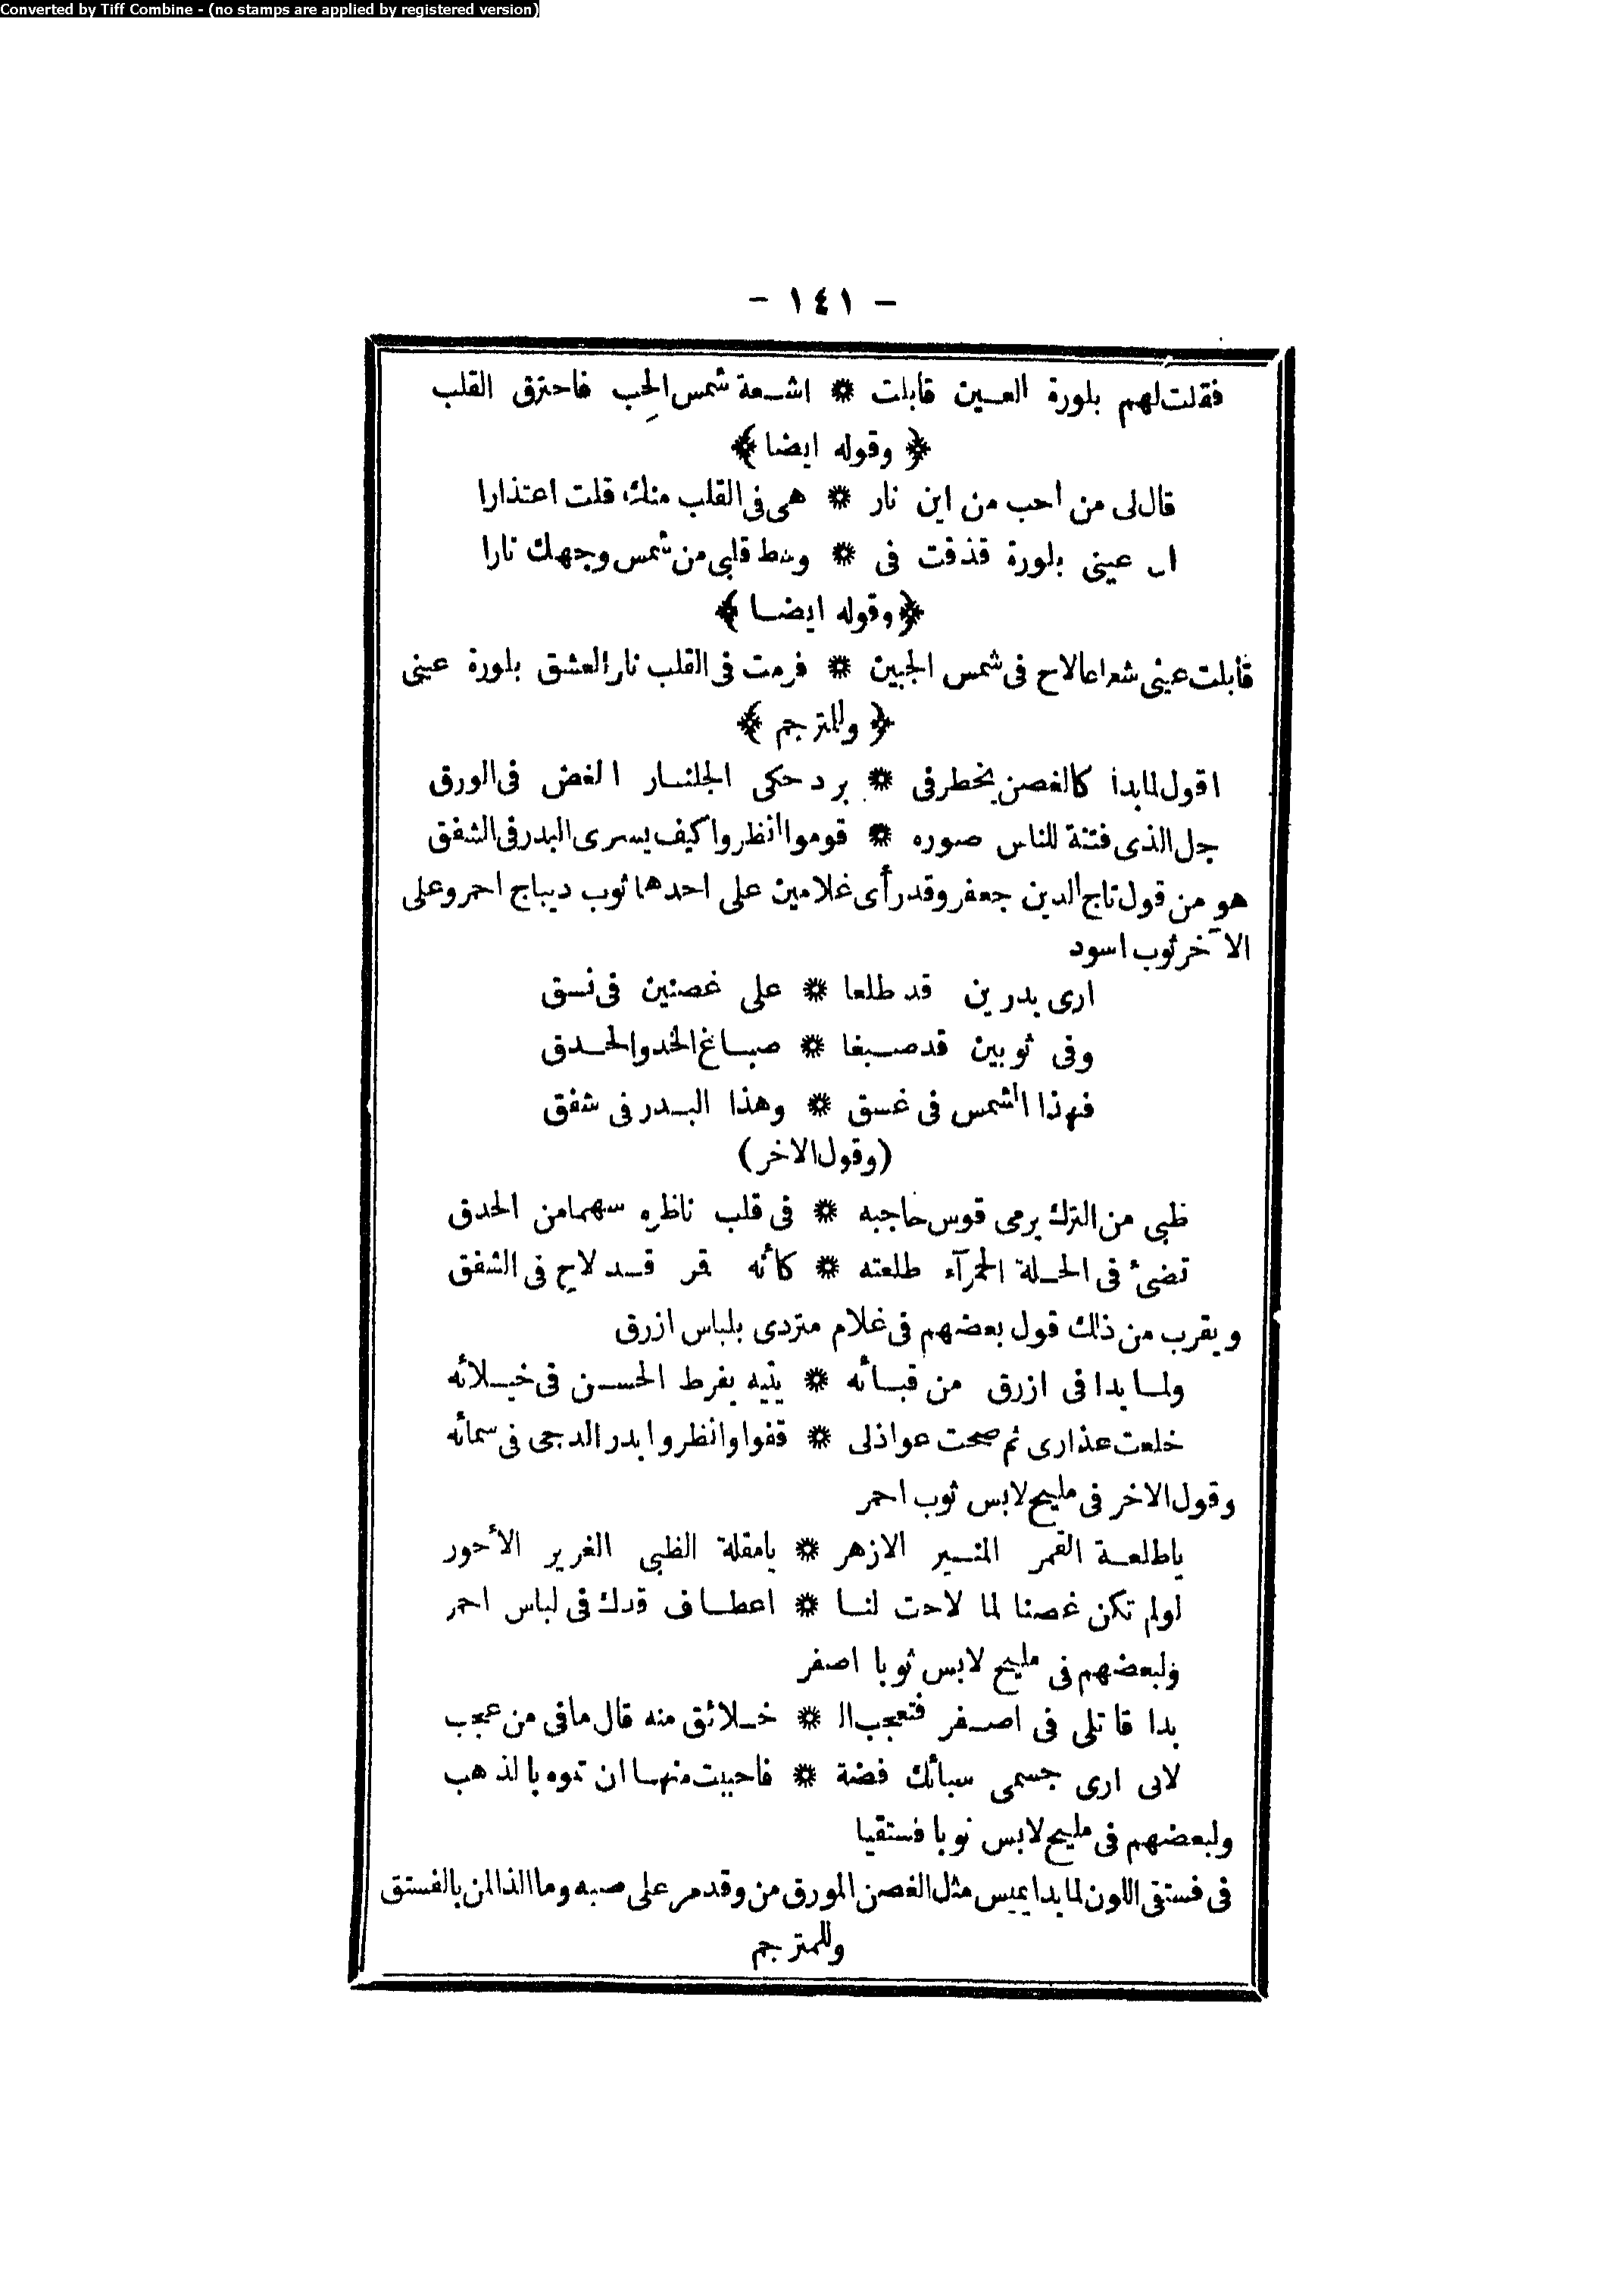 Converted by Tiff Combine - (no stamps are applied by registered version)
- ١٤١ -
فقلت لهم بلورة العين قابلت * اشعة شمس الحب فاحترق القلب
﴿ وقوله ايضا ﴾
قال لى من أحب من اين نار * هى فى القلب منك قلت اعتذارا
ان عينى بلورة قذفت فى * وسط قلبى من شمس وجهك نارا
﴿ وقوله ايضا ﴾
قابلت عينى شعاعا لاح فى شمس الجبين * فرمت فى القلب نار العشق بلورة عينى
﴿ وللمترجم ﴾
اقول لما بدا كالغصن يخطر فى * برد حكى الجلنار الغض فى الورق
جل الذى فتنة للناس صوره * قوموا انظروا كيف يسرى البدر فى الشفق
هو من قول تاج الدين جعفر وقد رأى غلامين على احدهما ثوب ديباج احمر وعلى
الآخر ثوب اسود
ارى بدرين قد طلعا * على غصنين فى نسق
وفى ثوبين قد صبغا * صباغ الخد والحدق
فهذا الشمس فى غسق * وهذا البدر فى شفق
(وقول الاخر)
ظبى من الترك يرمى قوس حاجبه * فى قلب ناظره سهما من الحدق
تضئ فى الحلة الحمرآء طلعته * كأنه قمر قد لاح فى الشفق
ويقرب من ذلك قول بعضهم فى غلام متردى بلباس ازرق
ولما بدا فى ازرق من قبائه * يتيه بفرط الحسن فى خيلائه
خلعت عذارى ثم صحت عواذلى * قفوا وانظروا بدر الدجى فى سمائه
وقول الاخر فى مليح لابس ثوب احمر
ياطلعة القمر المنير الازهر * يامقلة الظبى الغرير الأحور
لولم تكن غصنا لما لاحت لنا * اعطاف قدك فى لباس احمر
ولبعضهم فى مليح لابس ثوبا اصفر
بدا قاتلى فى اصفر فتعجب ال * خلائق منه قال مافى من عجب
لانى ارى جسمى سبائك فضة * فاحببت منها ان تموه بالذهب
ولبعضهم فى مليح لابس ثوبا فستقيا
فى فستقى اللون لما بدا يميس مثل الغصن المورق من وقد مر على صبه وما الذ المن بالفستق
وللمترجم